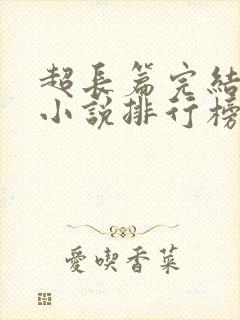 超長篇完結
小說排行榜
愛喫香菜